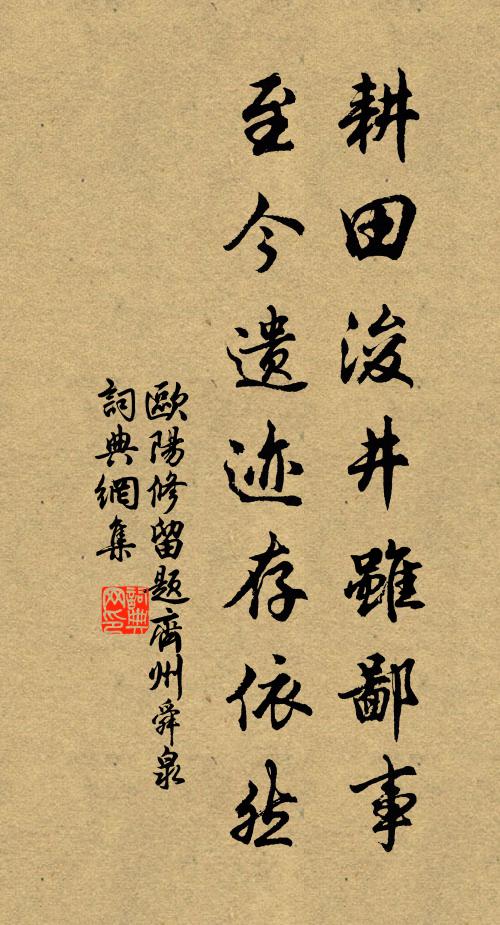 耕田浚井雖鄙事
至今遺迹存依然
歐陽修留題齊州舜泉
詞典網集
詞典
网印